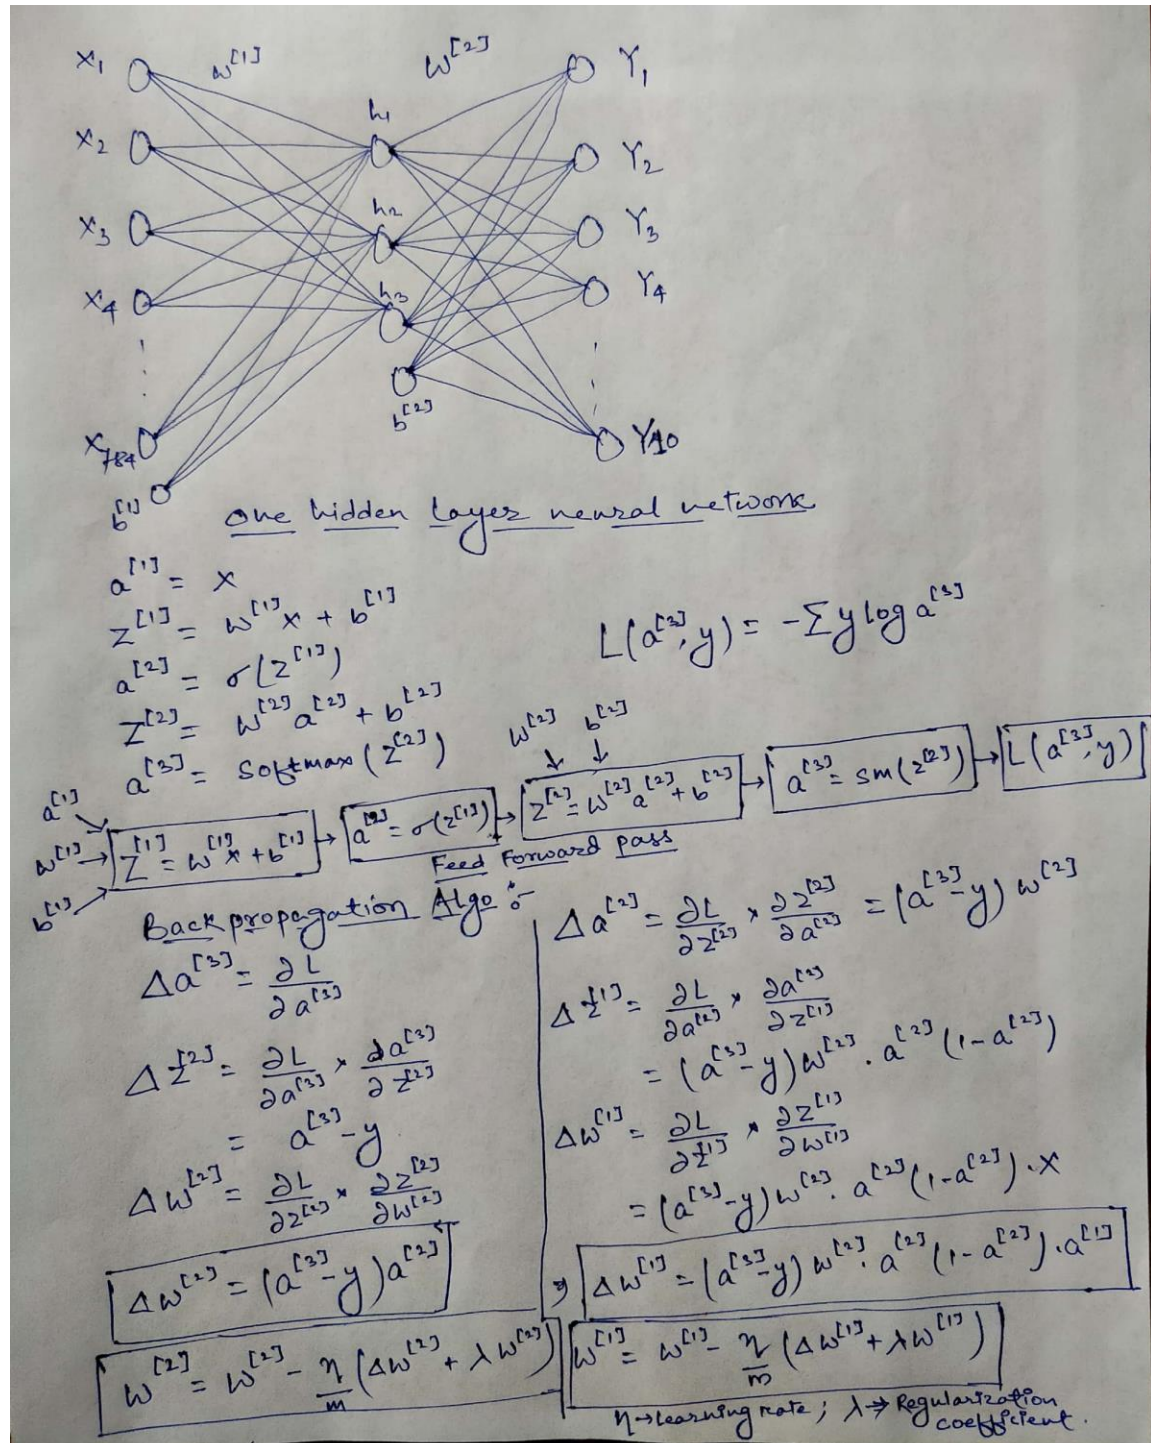 X₁ w^[1] w^[2] Y₁
h₁
X₂ Y₂
h₂
X₃ Y₃
h₃
X₄ Y₄
b^[2]
X₇₈₄ Y₁₀
b^[1]
One hidden layer neural network
a^[1] = x
z^[1] = w^[1]x + b^[1]
L(a^[3], y) = -Σ y log a^[3]
a^[2] = σ(z^[1])
Z^[2] = w^[2] a^[2] + b^[2]
a^[3] = Softmax(z^[2])
w^[2] b^[2]
a^[1]
w^[1] → Z^[1] = w^[1]x + b^[1] → a^[2] = σ(z^[1]) → Z^[2] = w^[2] a^[2] + b^[2] → a^[3] = sm(z^[2]) → L(a^[3], y)
b^[1]
Feed Forward pass
Back propagation Algo :-
Δa^[3] = ∂L / ∂a^[3]
Δz^[2] = ∂L / ∂a^[3] × ∂a^[3] / ∂z^[2]
= a^[3] - y
Δw^[2] = ∂L / ∂z^[2] × ∂z^[2] / ∂w^[2]
Δw^[2] = (a^[3] - y) a^[2]
w^[2] = w^[2] - η/m (Δw^[2] + λw^[2])
Δa^[2] = ∂L / ∂z^[2] × ∂z^[2] / ∂a^[2] = (a^[3] - y) w^[2]
Δz^[1] = ∂L / ∂a^[2] × ∂a^[2] / ∂z^[1]
= (a^[3] - y) w^[2] . a^[2] (1 - a^[2])
Δw^[1] = ∂L / ∂z^[1] × ∂z^[1] / ∂w^[1]
= (a^[3] - y) w^[2] . a^[2] (1 - a^[2]) . x
⇒ Δw^[1] = (a^[3] - y) w^[2] . a^[2] (1 - a^[2]) . a^[1]
w^[1] = w^[1] - η/m (Δw^[1] + λw^[1])
η → Learning rate ; λ → Regularization
coefficient.